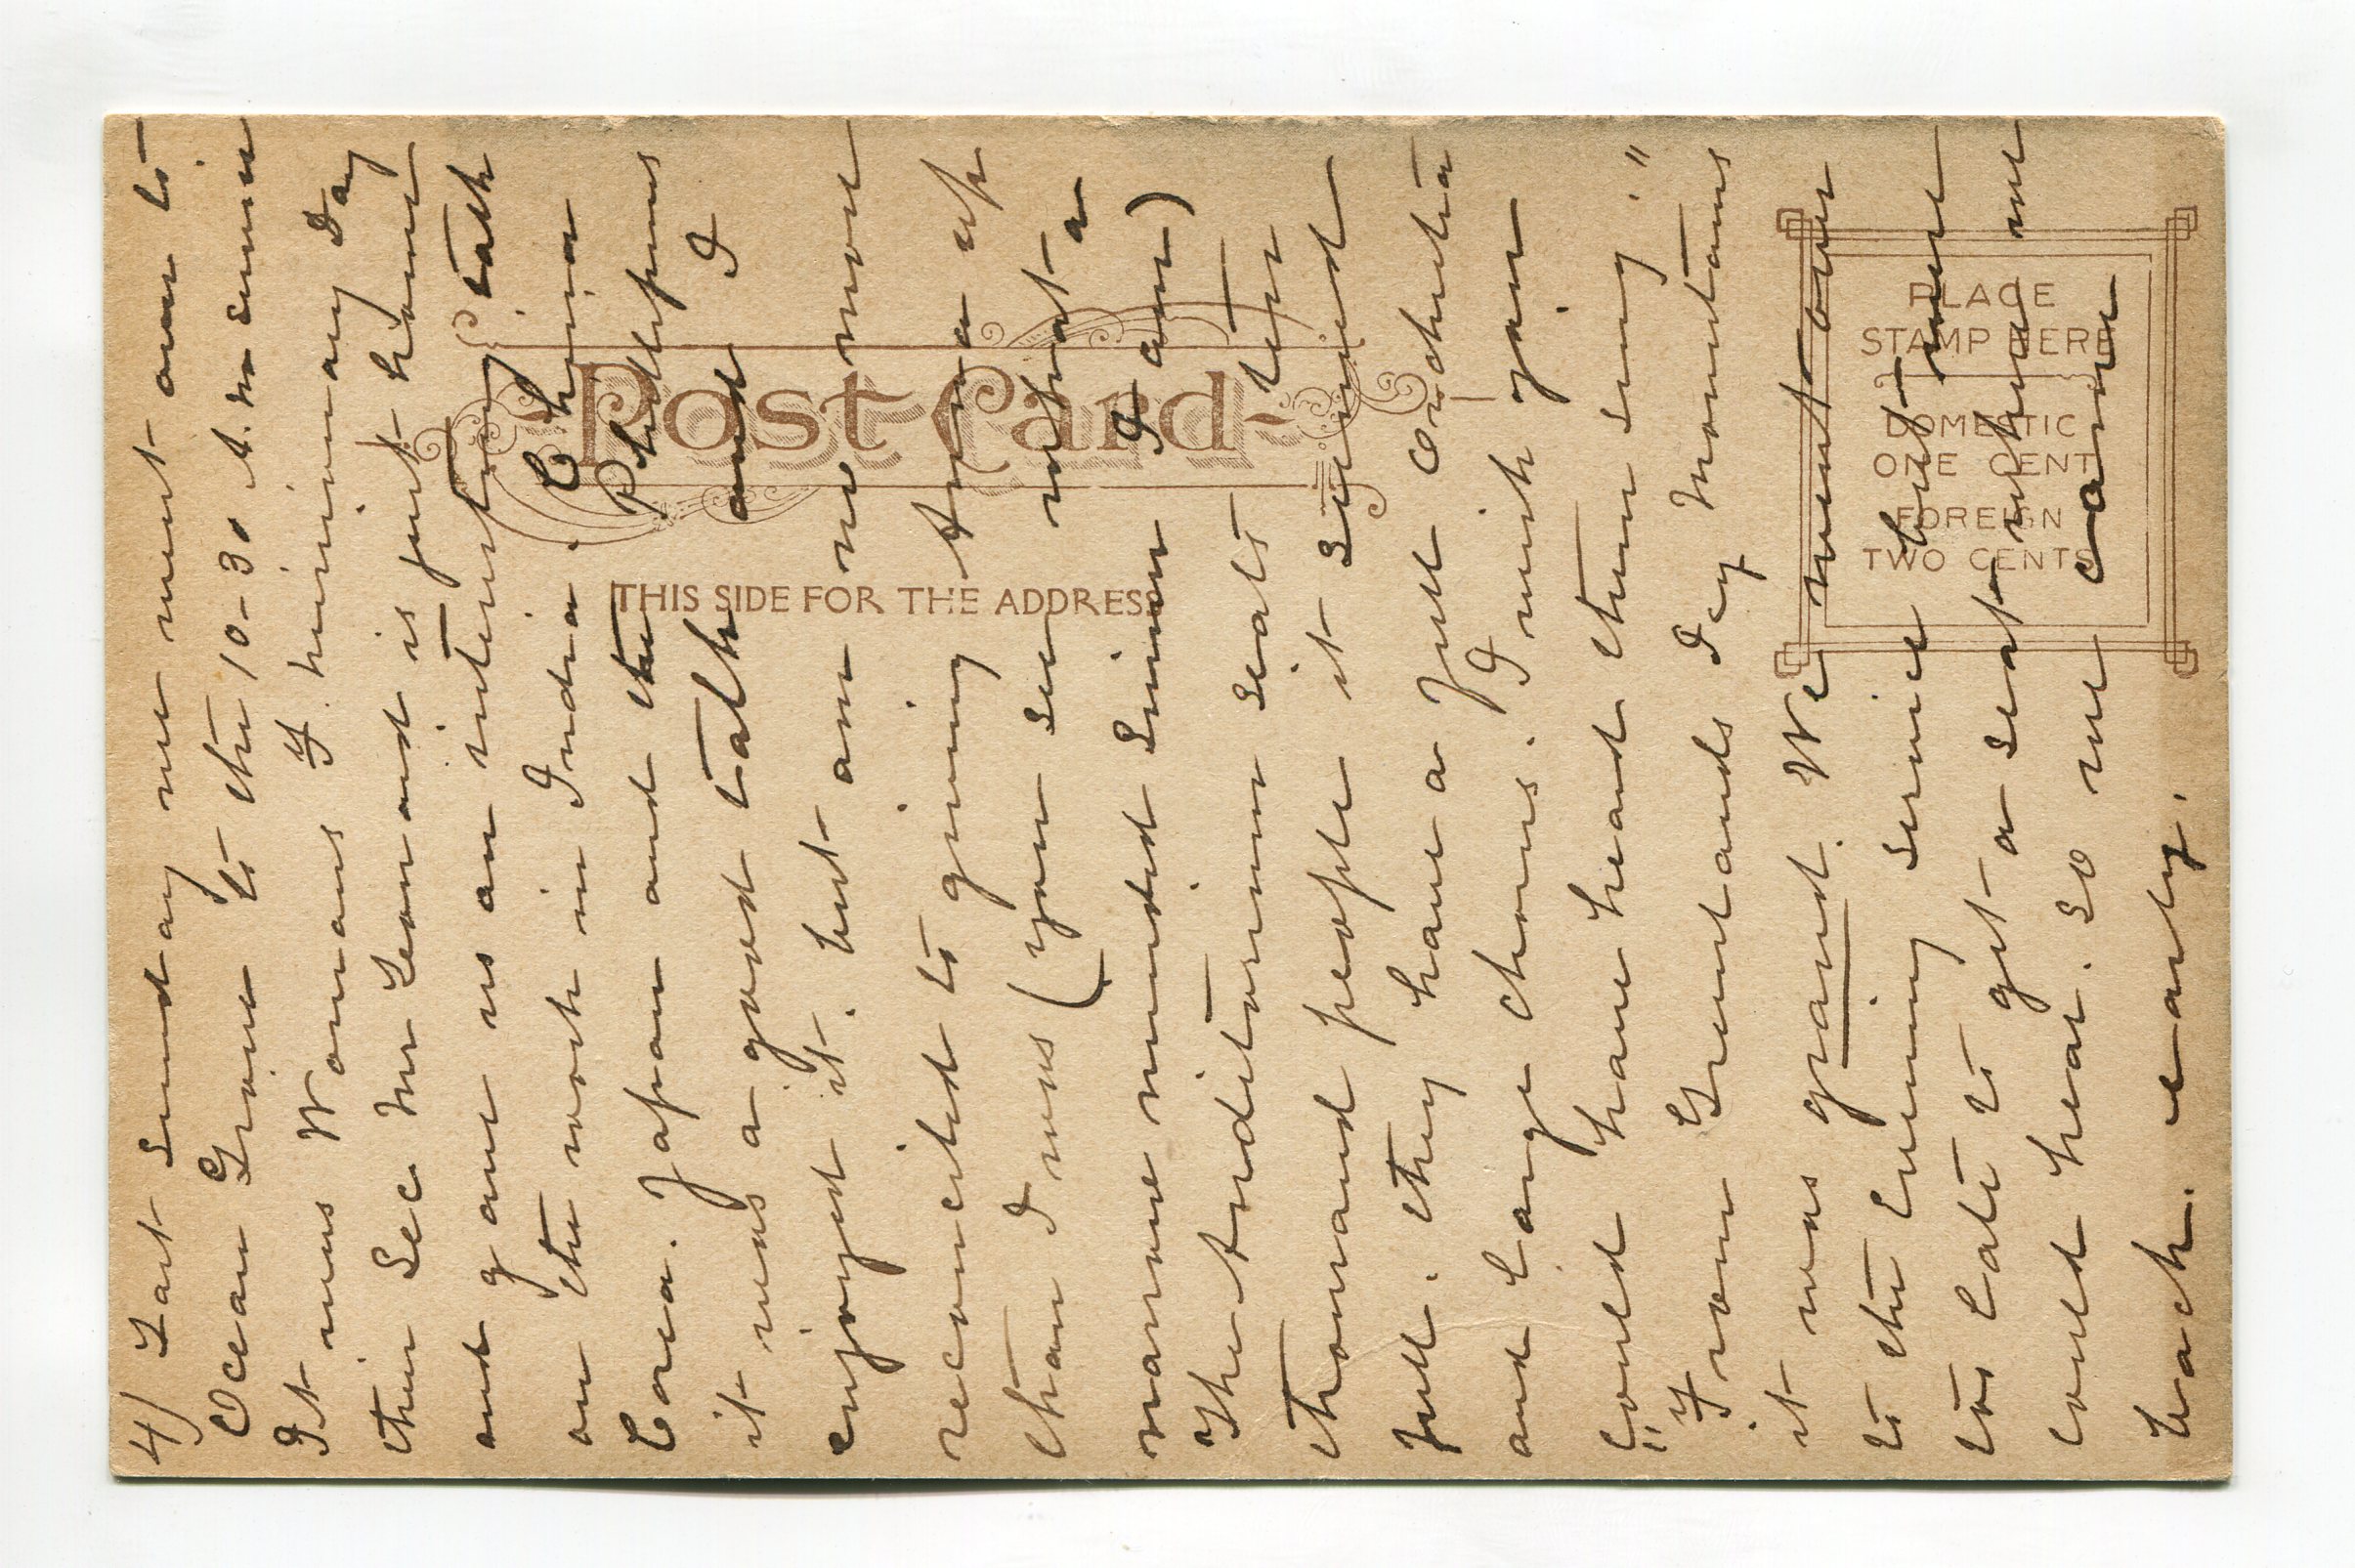 4) Last Sunday we went over to
Ocean Grove to the 10-30 A.M. service
It was Womans F. missionary Day
their Sec Mr Leonard is just home
and gave us an interesting talk
on the work in India. China
Corea. Japan and the Phillipines
it was a good talk and I
enjoyed it. but am no more
reconciled to giving Anna up
than I was (you see what a
narrow minded sinner I am)
The Auditorium seats ten
thousand people it seemed
full. they have a full orchestra
and large chorus. I wish you
could have heard them sing
"From Greenlands Icy Mountains"
it was grand. We went over
to the Evening service but were
too late to get a seat where we
could hear. so we came
back. early.
Post Card
THIS SIDE FOR THE ADDRESS
PLACE
STAMP HERE
DOMESTIC
ONE CENT
FOREIGN
TWO CENTS